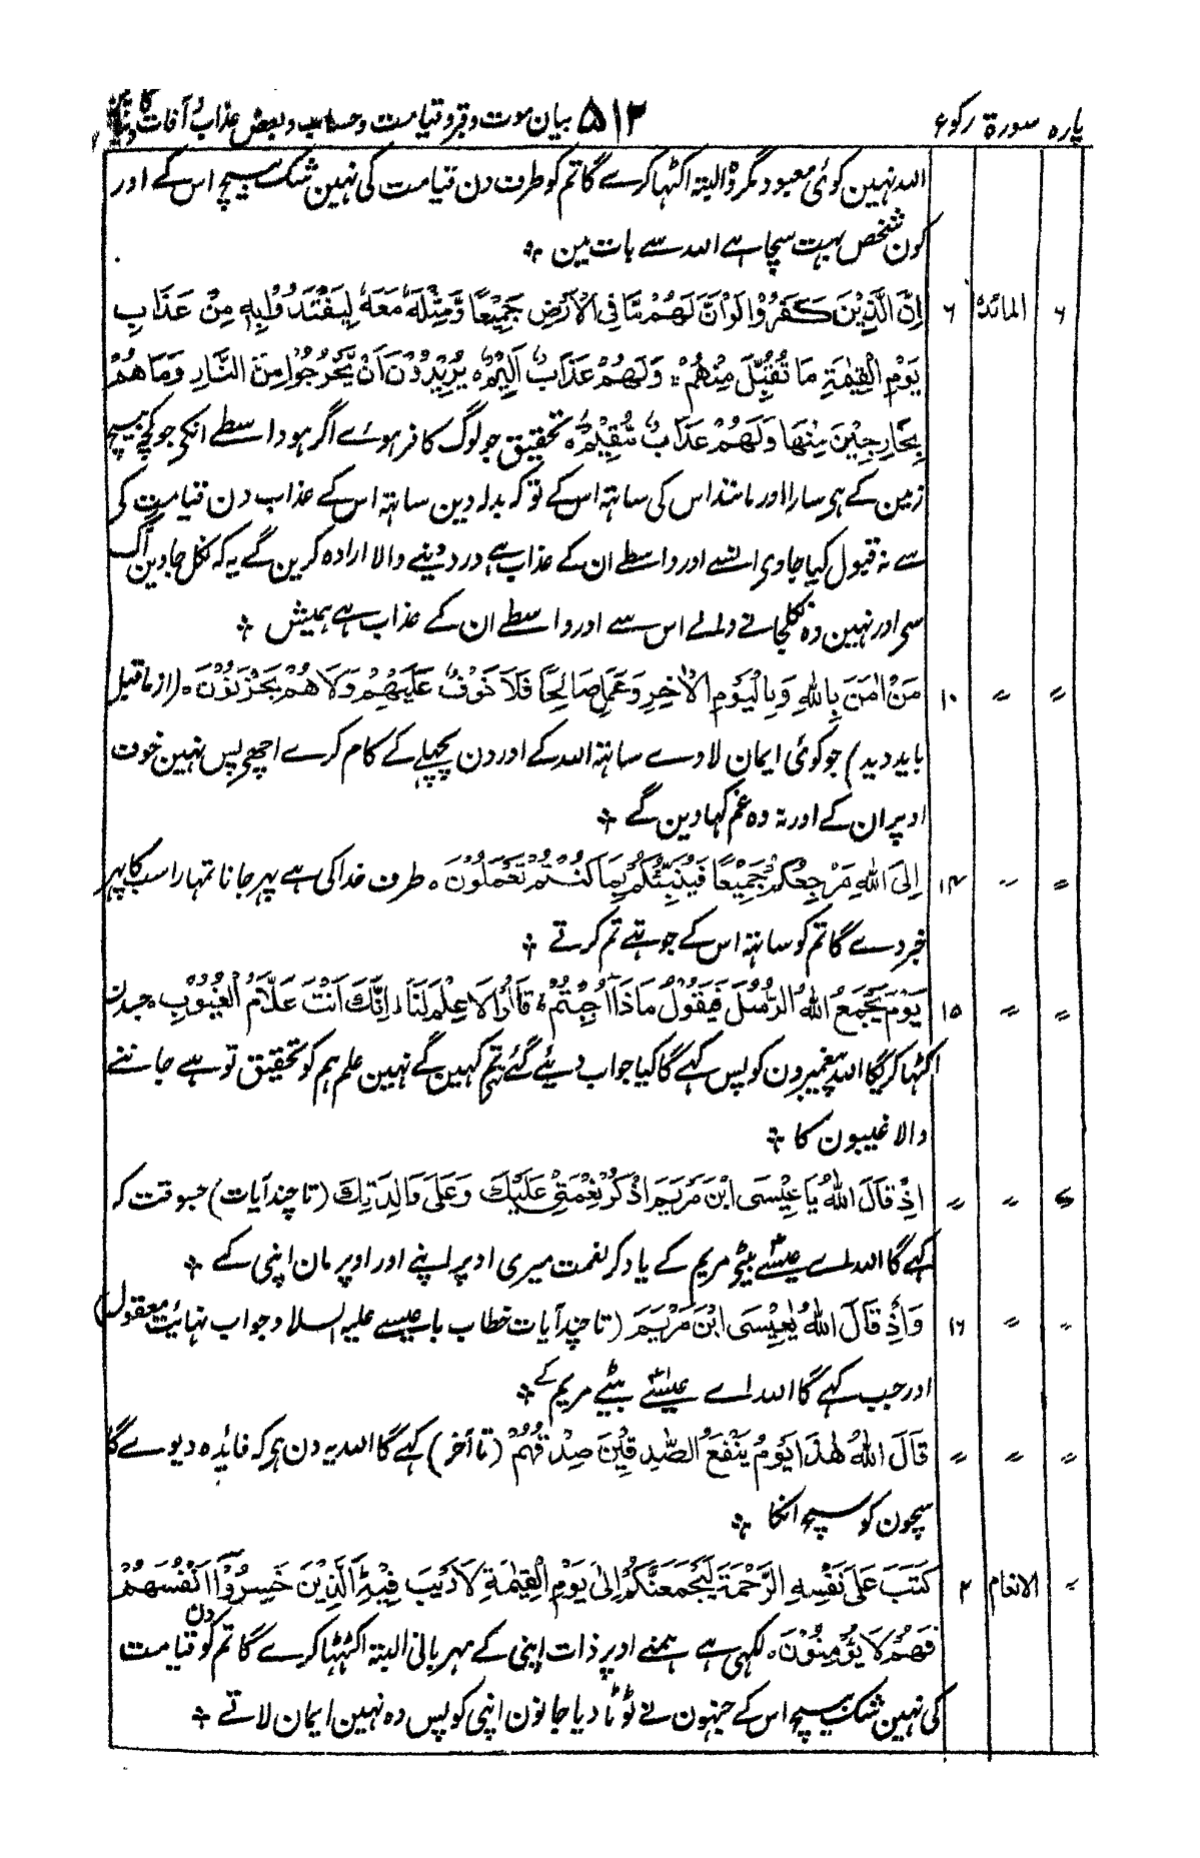 پارہ سورۃ رکوع ۵۱۲ بیان موت و قبر و قیامت و حساب و بعض عذاب و آفات
اللہ نہین کوئی معبود مگر وہ البتہ اکٹھا کرے گا تم کو طرف دن قیامت کی نہین شک بیچ اس کے اور
کون شخص بہت سچا ہے اللہ سے بات مین
۶ المائدۃ ۶ اِنَّ الَّذِيْنَ كَفَرُوْا لَوْ اَنَّ لَهُمْ مَّا فِي الْاَرْضِ جَمِيْعًا وَّمِثْلَهٗ مَعَهٗ لِيَفْتَدُوْا بِهٖ مِنْ عَذَابِ
يَوْمِ الْقِيٰمَةِ مَا تُقُبِّلَ مِنْهُمْ وَلَهُمْ عَذَابٌ اَلِيْمٌ ہ يُرِيْدُوْنَ اَنْ يَّخْرُجُوْا مِنَ النَّارِ وَمَا هُمْ
بِخَارِجِيْنَ مِنْهَا وَلَهُمْ عَذَابٌ مُّقِيْمٌ ہ تحقیق جو لوگ کافر ہوئے اگر ہو واسطے انکی جو کچھ بیچ
زمین کے ہی سارا اور مانند اس کی ساتہ اس کے تو کہ بدلہ دین ساتہ اس کے عذاب دن قیامت کی
سے نہ قبول کیا جاوی انسے اور واسطے ان کے عذاب ہے درد دینے والا ارادہ کرین گے یہ کہ نکل جاوین آگ
سی اور نہین وہ نکلجانے والے اس سے اور واسطے ان کے عذاب ہے ہمیش
〃 〃 ۱۰ مَنْ اٰمَنَ بِاللّٰهِ وَبِالْيَوْمِ الْاٰخِرِ وَعَمِلَ صَالِحًا فَلَا خَوْفٌ عَلَيْهِمْ وَلَا هُمْ يَحْزَنُوْنَ ہ (از ماقبل
باید دید) جو کوئی ایمان لاوے ساتہ اللہ کے اور دن پچھلے کے کام کرے اچھے پس نہین خوف
اوپر ان کے اور نہ وہ غم کہاوین گے
〃 〃 ۱۴ اِلَى اللّٰهِ مَرْجِعُكُمْ جَمِيْعًا فَيُنَبِّئُكُمْ بِمَا كُنْتُمْ تَعْمَلُوْنَ ہ طرف خدا کی ہے پہر جانا تمہارا سب کا پہر
خبر دے گا تم کو ساتہ اس کے جو تہے تم کرتے
〃 〃 ۱۵ يَوْمَ يَجْمَعُ اللّٰهُ الرُّسُلَ فَيَقُوْلُ مَاذَا اُجِبْتُمْ قَالُوْا لَا عِلْمَ لَنَا اِنَّكَ اَنْتَ عَلَّامُ الْغُيُوْبِ ہ جسدن
اکٹھا کریگا اللہ پیغمبرون کو پس کہے گا کیا جواب دیئے گئے تم کہین گے نہین علم ہم کو تحقیق تو ہے جاننے
والا غیبون کا
〃 〃 〃 اِذْ قَالَ اللّٰهُ يَا عِيْسَى ابْنَ مَرْيَمَ اذْكُرْ نِعْمَتِيْ عَلَيْكَ وَعَلٰى وَالِدَتِكَ (تا چند آیات) جسوقت کہ
کہے گا اللہ اے عیسے بیٹے مریم کے یاد کر نعمت میری اوپر اپنے اور اوپر مان اپنی کے
〃 〃 ۱۶ وَاِذْ قَالَ اللّٰهُ يٰعِيْسَى ابْنَ مَرْيَمَ (تا چند آیات خطاب باب عیسے علیہ السلام و جواب نہایت معقول)
اور جب کہے گا اللہ اے عیسے بیٹے مریم کے
〃 〃 〃 قَالَ اللّٰهُ هٰذَا يَوْمُ يَنْفَعُ الصّٰدِقِيْنَ صِدْقُهُمْ (تا آخر) کہے گا اللہ یہ دن ہی کہ فائدہ دیوے گا
سچون کو سچ انکا
〃 الانعام ۲ كَتَبَ عَلٰى نَفْسِهِ الرَّحْمَةَ لَيَجْمَعَنَّكُمْ اِلٰى يَوْمِ الْقِيٰمَةِ لَا رَيْبَ فِيْهِ الَّذِيْنَ خَسِرُوْا اَنْفُسَهُمْ
فَهُمْ لَا يُؤْمِنُوْنَ ہ لکہی ہے ہمنے اوپر ذات اپنی کے مہربانی البتہ اکٹھا کرے گا تم کو دن قیامت
کی نہین شک بیچ اس کے جنہون نے ٹوٹا دیا جانون اپنی کو پس وہ نہین ایمان لاتے